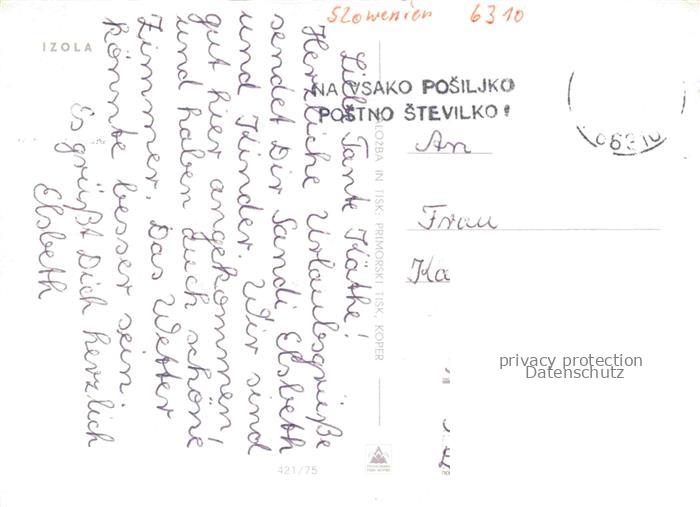 Slowenien 6310
IZOLA
NA VSAKO POŠILJKO
POŠTNO ŠTEVILKO!
06310
Liebe Tante Käthe!
Herzliche Urlaubsgrüße
sendet Dir Sandi Elsbeth
und Kinder. Wir sind
gut hier angekommen!
und haben auch schöne
Zimmer. Das Wetter
könnte besser sein.
Es grüßt Dich herzlich
Elsbeth
ZALOŽBA IN TISK: PRIMORSKI TISK, KOPER
An
Frau
Ka
privacy protection
Datenschutz
421/75